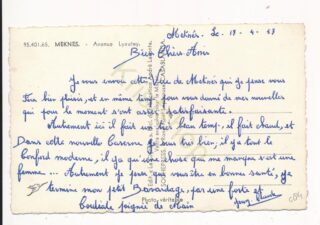 Meknès. Le 13-4-53
95.401.65. MEKNÈS. - Avenue Lyautey.
Bien Chère Amis
Je vous envoie cette Vue de Meknès qui je pense vous
Fera bien plaisir, et en même temps pour vous donné de mes nouvelles
qui pour le moment s'ont assez satisfaisante.
Autrement ici il fait un très beau temp, il fait chaud, et
Dans cette nouvelle Caserne je suis très bien, il y a tout le
Conford moderne, il y a qui une chose que me manque s'est une
femme... Autrement je pense que vous être en bonne santé, je
termine mon petit Bavardage, par une forte et
Cordiale poignée de Main
Photo véritable